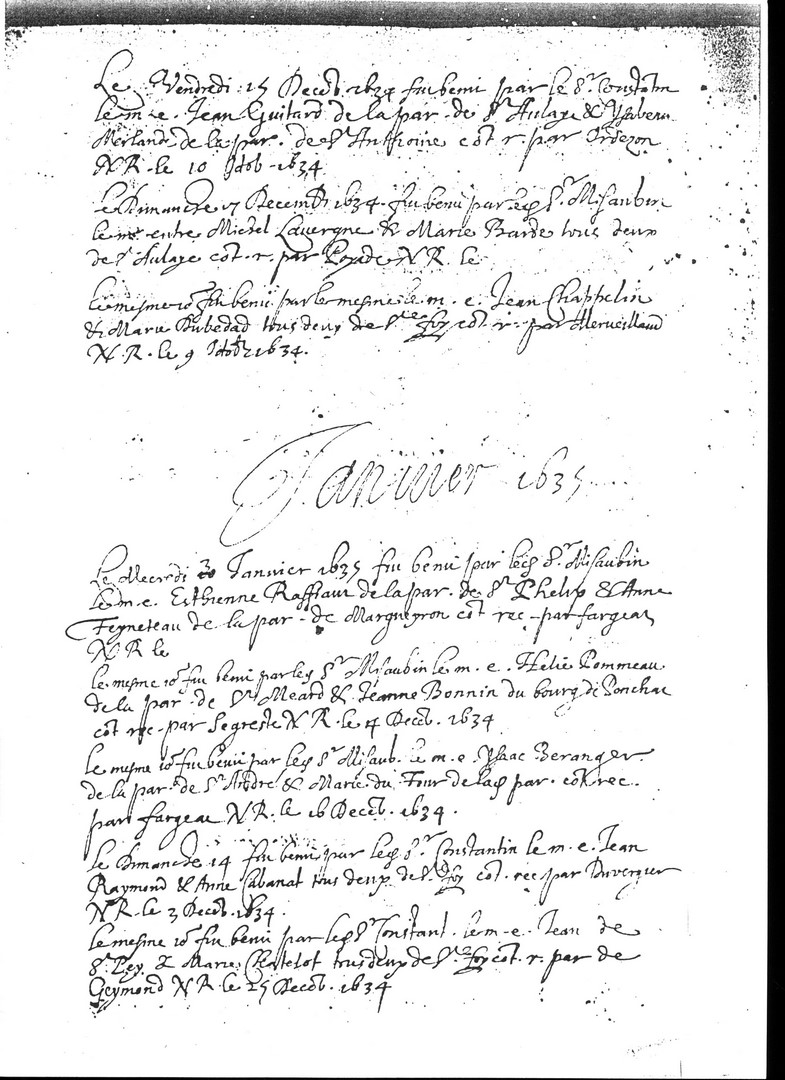 Le Vendredi 15 Decēb. 1634 fut beni par le Sr. Constātin
le m. e. Jean Guitard de la par. de St Aulaye & Ysabeau
Merlande de la par. de St Anthoine cōt. r. par Ordezon
N R. le 10 1634.
le Dimanche 17 Decemb. 1634. fut beni par led. Sr. Misaubin
le m. entre Michel Lavergne & Marie Barde tous deux
de St Aulaye cōt. r. par N. R. le
le mesme io. fut beni par le mesme le m. e. Jean Chappelin
& Marie Dubedad tous deux de Ste Foy cōt. r. par Merveillaud
N. R. le 9 1634.
Janvier 1635
Le Mecredi Janvier 1635 fut beni par led. Sr. Misaubin
le m. e. Esthienne Raffiaut de la par. de St. Phelip & Anne
Feyneteau de la par. de Margueyron cōt rec. par fargeau
N R le
le mesme io. fut beni par led. Sr. Misaubin le m. e. Helie Pommeau
de la par. de St Meard & Jeanne Bonnin du bourg de Ponchat
cōt rec. par Segreste N R. le 4 Decēb. 1634
le mesme io. fut beni par led. Sr. Misaub. le m. e. Ysaac Beranger
de la par. de St. André & Marie du Four de lad. par. cōt rec.
par fargeau N R. le 16 Decēb. 1634.
le Dimanche 14 fut beni par led. Sr. Constantin le m. e. Jean
Raymond & Anne Cabanat tous deux de Ste Foy cōt. rec par Duvergier
N R. le 3 Decēb. 1634.
le mesme io. fut beni par led. Sr Constant. le m. e. Jean de
St. Pey & Marie Chatelot tous deux de Ste Foy cōt. r. par de
Geymond N R. le 25 Decēb. 1634